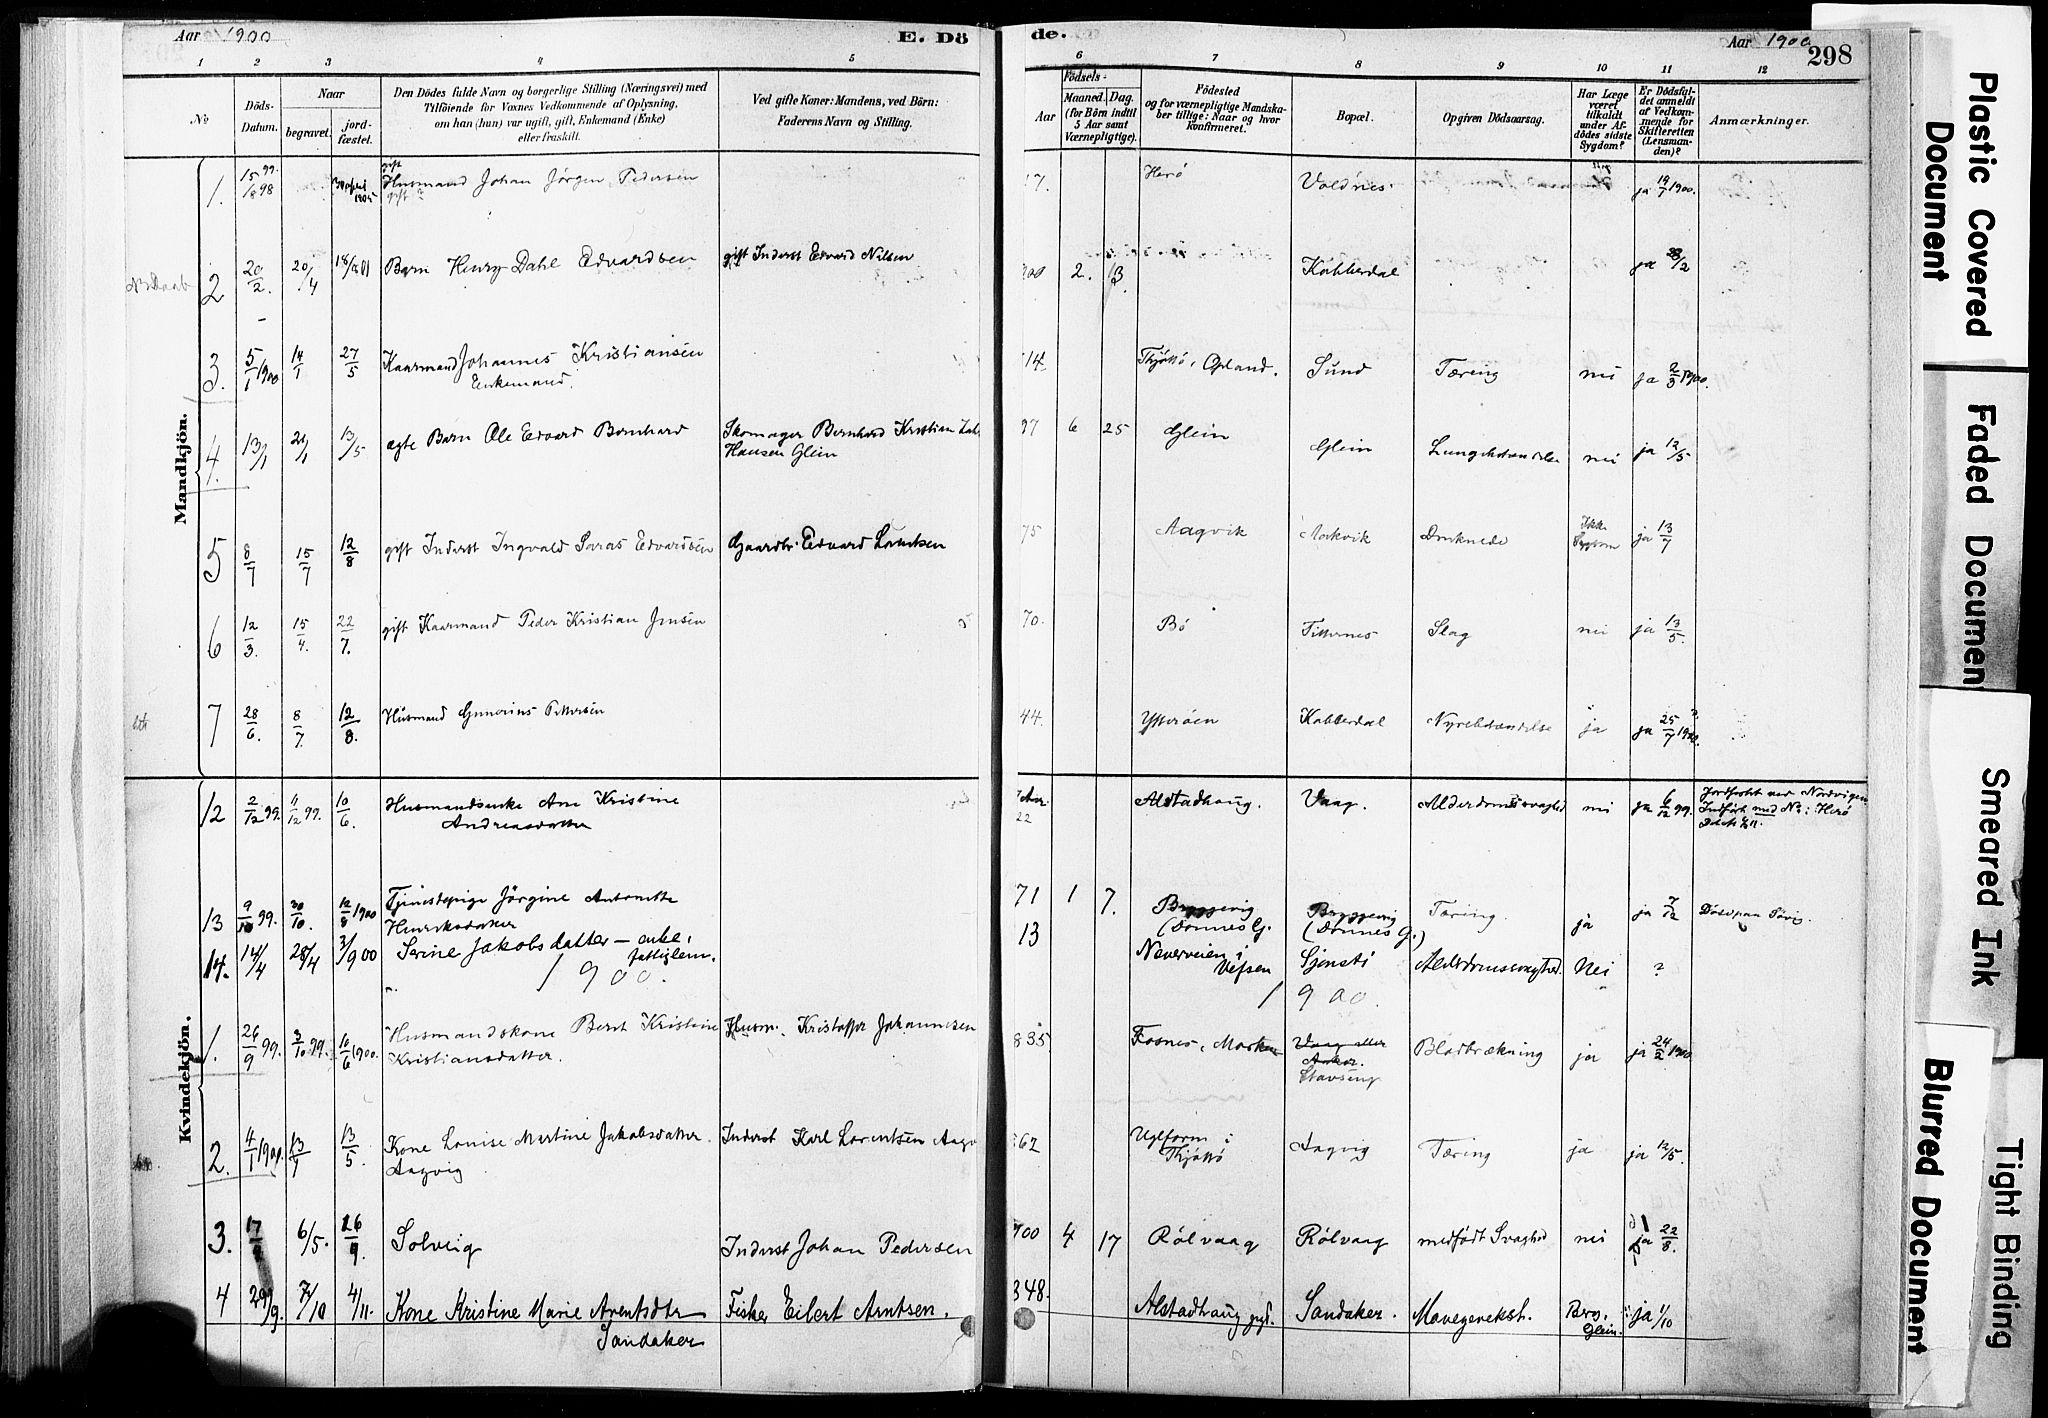 Aar 1900
E. Dö
de.
Aar 1900
298
1 2 3 4 5
6 7 8 9 10 11 12
No
Döds-
Datum.
Naar
begravet.
jord-
fæstet.
Den Dödes fulde Navn og borgerlige Stilling (Næringsvei) med
Tilföiende for Voxnes Vedkommende af Oplysning,
om han (hun) var ugift, gift, Enkemand (Enke)
eller fraskilt.
Ved gifte Koner: Mandens, ved Börn:
Faderens Navn og Stilling.
Födsels-
Aar
Maaned.
Dag.
(for Börn indtil
5 Aar samt
Værnepligtige).
Födested
og for værnepligtige Mandska-
ber tillige: Naar og hvor
Konfirmeret.
Bopæl.
Opgiven Dödsaarsag.
Har Læge
været
tilkaldt
under Af-
dödes sidste
Sygdom?
Er Dödsfal-
det anmeldt
af Vedkom-
mende for
Skifteretten
(Lensman-
den)?
Anmærkninger.
Mandkjön.
1. 15/8 98 gift Husmand Johan Jörgen Pedersen 17. Herö Valdnes. ja 19/7 1900.
2 20/2. 20/4 18/8 01 Barn Henry Dahl Edvardsen gift Inderst Edvard Nilsen 900 2. 13. Kobberdal ja 28/2
3. 5/1 1900 14/1 27/5 Kaarmand Johannes Kristiansen
Enkemand.
14. Thjöttö, Opland. Sund Tæring nei ja 2/3 1900.
4. 13/1 21/1 13/5 ægte Barn Ole Edvard Bernhard Skomager Bernhard Kristian
Hansen Glein
97 6 25 Glein Glein Lungebetændelse nei ja 12/5
5 8/7 15/7 12/8 gift Inderst Ingvald Saras Edvardsen Gaardbr. Edvard Lorntsen 75 Aagvik Aakvik Druknede Ikke
Sygdom
ja 13/7
6 12/3. 15/4. 22/7. gift Kaarmand Peder Kristian Jensen 70. Bö Titternes Slag nei ja 13/5.
7 28/6. 8/7. 12/8. Husmand Gunerius Pettersen 44. Ytterøen Kobberdal Nyrebetændelse ja ja 25/7 1900.
Kvindekjön.
12 2/12 99. 11/12 99. 10/6. Husmandsenke Ane Kristine
Andreasdatter
22 Alstadhaug. Vaag. Alderdomssvaghed nei ja 6/12 99. Jordfæstet ved Nordvigen
Indført med No: Herö
13 9/10 99. 30/10. 12/8 1900 Tjenestepige Jörgine Antonette
Henriksdatter
71 1 7. Bryggevig
(Dønnes G.
Bryggevig
(Dønnes G.)
Tæring. ja ja 7/12
14. 14/4 28/4 3/9 00 Serine Jakobsdatter — enke,
fattiglem.
13 Neverveien i
Vefsen
Sjonsti Alderdomssvaghed. Nei ?
1900.
1900.
1. 26/9 99. 3/10 99. 10/6 1900. Husmandskone Berit Kristine
Kristiansdatter.
Husm. Kristoffer Johannesen 835 Fosnes, Vaag eller
Stavseng
Blodbrækning ja ja 24/2 1900
2. 4/1 1900. 13/1 13/5. Kone Louise Martine Jakobsdatter.
Aagvig
Inderst Karl Lorentsen 62 i
Thjöttö
Aagvig Tæring ja ja 12/5.
3. 17/8 6/5. 26/9. Solveig Inderst Johan Pedersen 900 4 17 Rölvaag Rölvaag medfödt Svaghed nei ja 22/8.
4 29/9. 7/10 4/11. Kone Kristine Marie Arentsdtr
Sandaker
Fisker Eilert Arntsen. 848. Alstadhaug pgd. Sandaker. Mavegevekst. Berg,
Glein.
ja 1/10
Plastic Covered
Document
Faded Document
Smeared Ink
Blurred Document
Tight Binding